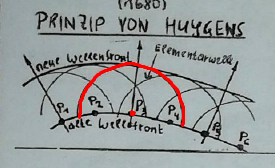 (1680)
PRINZIP VON HUYGENS
neue Wellenfront
Elementarwelle
P1 P2 P3 P4 P5 P6
alte Wellefront